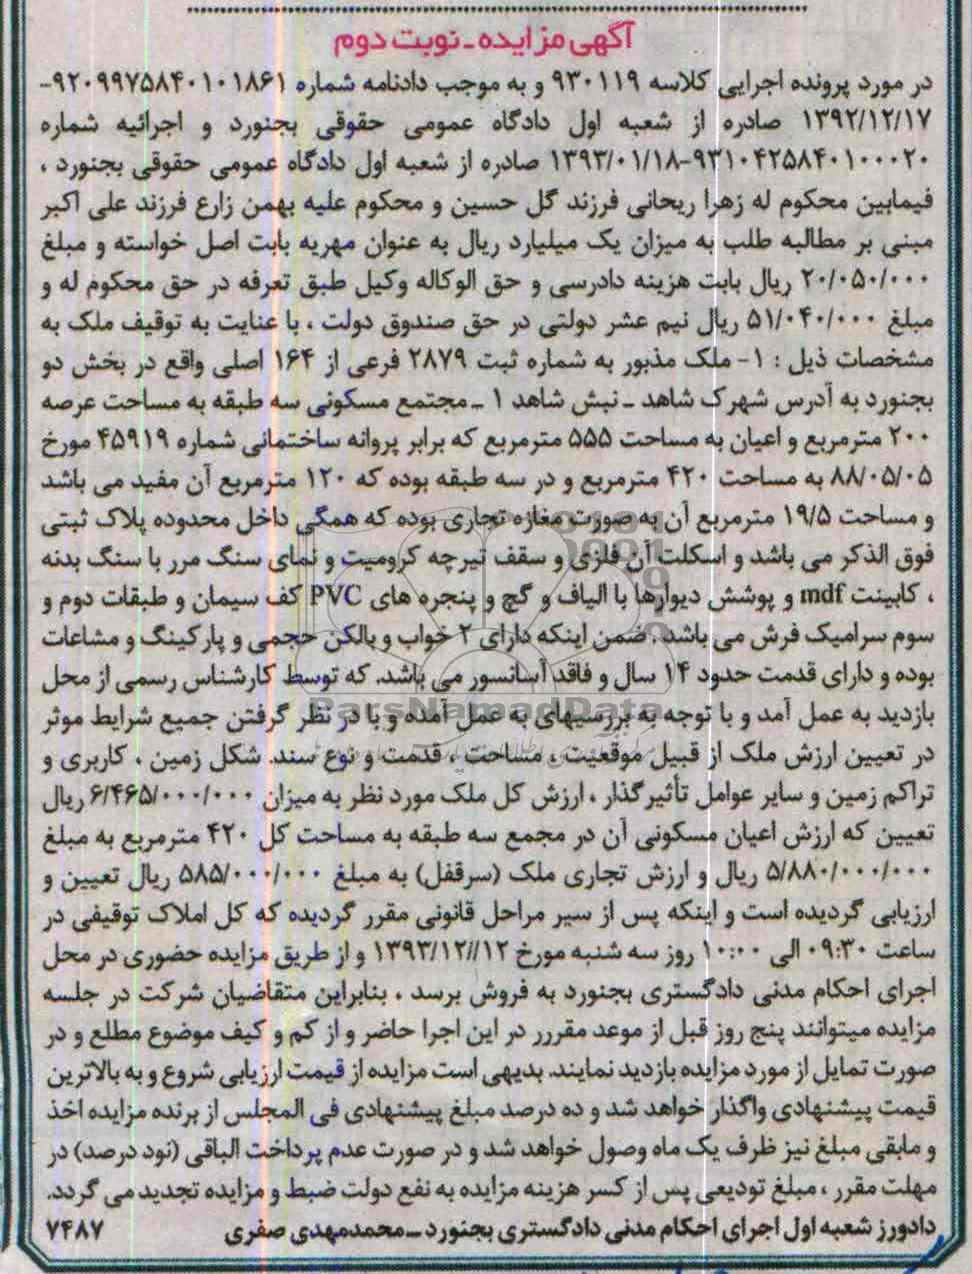 آگهی مزایده ـ نوبت دوم
در مورد پرونده اجرایی کلاسه ۹۳۰۱۱۹ و به موجب دادنامه شماره ۹۲۰۹۹۷۵۸۴۰۱۰۱۸۶۱-
۱۳۹۲/۱۲/۱۷ صادره از شعبه اول دادگاه عمومی حقوقی بجنورد و اجرائیه شماره
۹۳۱۰۴۲۵۸۴۰۱۰۰۰۲۰-۱۳۹۳/۰۱/۱۸ صادره از شعبه اول دادگاه عمومی حقوقی بجنورد ،
فیمابین محکوم له زهرا ریحانی فرزند گل حسین و محکوم علیه بهمن زارع فرزند علی اکبر
مبنی بر مطالبه طلب به میزان یک میلیارد ریال به عنوان مهریه بابت اصل خواسته و مبلغ
۲۰/۰۵۰/۰۰۰ ریال بابت هزینه دادرسی و حق الوکاله وکیل طبق تعرفه در حق محکوم له و
مبلغ ۵۱/۰۴۰/۰۰۰ ریال نیم عشر دولتی در حق صندوق دولت ، با عنایت به توقیف ملک به
مشخصات ذیل : ۱- ملک مذبور به شماره ثبت ۲۸۷۹ فرعی از ۱۶۴ اصلی واقع در بخش دو
بجنورد به آدرس شهرک شاهد ـ نبش شاهد ۱ ـ مجتمع مسکونی سه طبقه به مساحت عرصه
۲۰۰ مترمربع و اعیان به مساحت ۵۵۵ مترمربع که برابر پروانه ساختمانی شماره ۴۵۹۱۹ مورخ
۸۸/۰۵/۰۵ به مساحت ۴۲۰ مترمربع و در سه طبقه بوده که ۱۲۰ مترمربع آن مفید می باشد
و مساحت ۱۹/۵ مترمربع آن به صورت مغازه تجاری بوده که همگی داخل محدوده پلاک ثبتی
فوق الذکر می باشد و اسکلت آن فلزی و سقف تیرچه کرومیت و نمای سنگ مرر با سنگ بدنه
، کابینت mdf و پوشش دیوارها با الیاف و گچ و پنجره های PVC کف سیمان و طبقات دوم و
سوم سرامیک فرش می باشد. ضمن اینکه دارای ۲ خواب و بالکن حجمی و پارکینگ و مشاعات
بوده و دارای قدمت حدود ۱۴ سال و فاقد آسانسور می باشد. که توسط کارشناس رسمی از محل
بازدید به عمل آمد و با توجه به بررسیهای به عمل آمده و با در نظر گرفتن جمیع شرایط موثر
در تعیین ارزش ملک از قبیل موقعیت ، مساحت ، قدمت و نوع سند. شکل زمین ، کاربری و
تراکم زمین و سایر عوامل تأثیرگذار ، ارزش کل ملک مورد نظر به میزان ۶/۴۶۵/۰۰۰/۰۰۰ ریال
تعیین که ارزش اعیان مسکونی آن در مجمع سه طبقه به مساحت کل ۴۲۰ مترمربع به مبلغ
۵/۸۸۰/۰۰۰/۰۰۰ ریال و ارزش تجاری ملک (سرقفل) به مبلغ ۵۸۵/۰۰۰/۰۰۰ ریال تعیین و
ارزیابی گردیده است و اینکه پس از سیر مراحل قانونی مقرر گردیده که کل املاک توقیفی در
ساعت ۰۹:۳۰ الی ۱۰:۰۰ روز سه شنبه مورخ ۱۳۹۳/۱۲//۱۲ و از طریق مزایده حضوری در محل
اجرای احکام مدنی دادگستری بجنورد به فروش برسد ، بنابراین متقاضیان شرکت در جلسه
مزایده میتوانند پنج روز قبل از موعد مقررر در این اجرا حاضر و از کم و کیف موضوع مطلع و در
صورت تمایل از مورد مزایده بازدید نمایند. بدیهی است مزایده از قیمت ارزیابی شروع و به بالاترین
قیمت پیشنهادی واگذار خواهد شد و ده درصد مبلغ پیشنهادی فی المجلس از برنده مزایده اخذ
و مابقی مبلغ نیز ظرف یک ماه وصول خواهد شد و در صورت عدم پرداخت الباقی (نود درصد) در
مهلت مقرر ، مبلغ تودیعی پس از کسر هزینه مزایده به نفع دولت ضبط و مزایده تجدید می گردد.
دادورز شعبه اول اجرای احکام مدنی دادگستری بجنورد ـ محمدمهدی صفری ۷۴۸۷
ParsNamadData